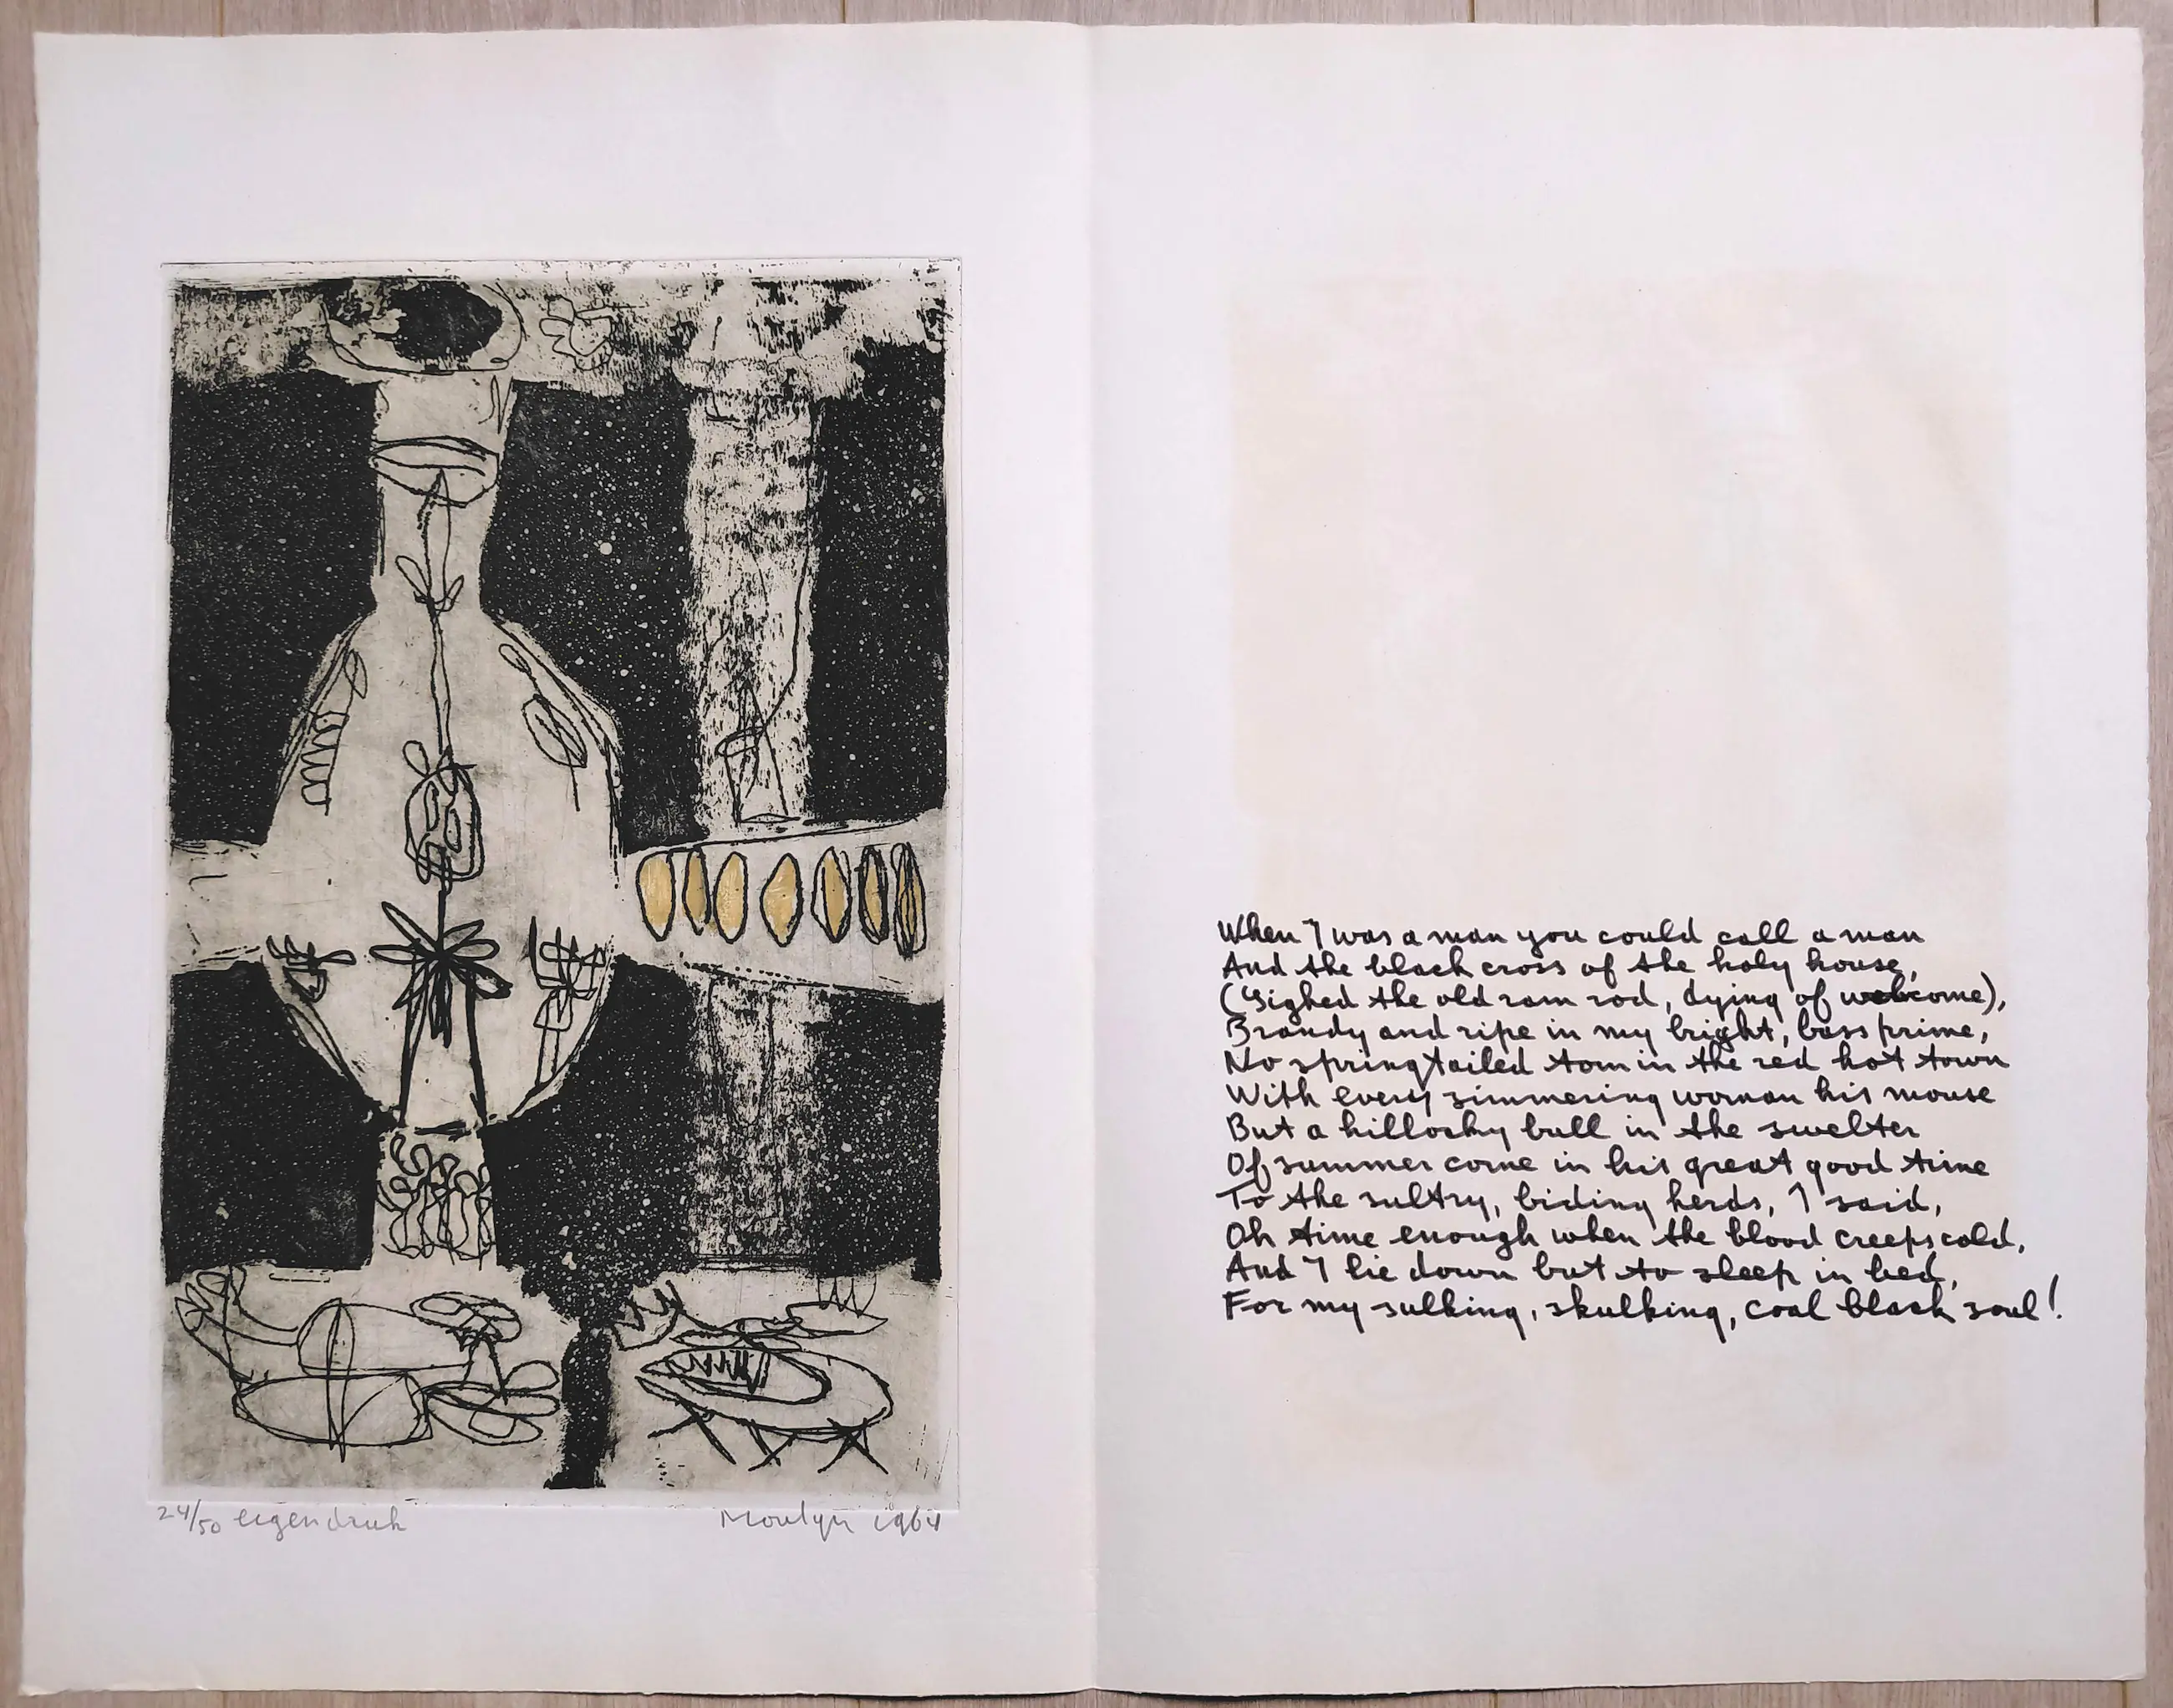 24/50 eigendruk
Mourlyn 1964
When I was a man you could call a man
And the black cross of the holy house,
(Sighed the old ram rod, dying of welcome),
Brandy and ripe in my bright, bass prime,
No springtailed tom in the red hot town
With every simmering woman his mouse
But a hillocky bull in the swelter
Of summer come in his great good time
To the sultry, biding herds, I said,
Oh time enough when the blood creeps cold,
And I lie down but to sleep in bed,
For my sulking, skulking, coal black soul!